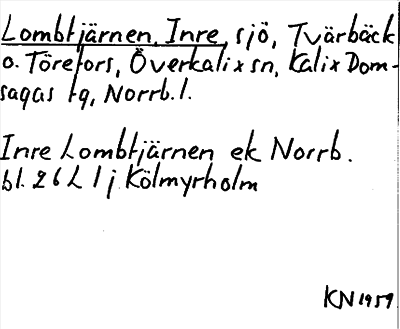 Lombtjärnen, Inre, sjö, Tvärbäck
o. Törefors, Överkalix sn, Kalix Dom-
sagas tg, Norrb. l.
Inre Lombtjärnen ek Norrb.
bl. 26 L 1 j Kölmyrholm
KN 1959